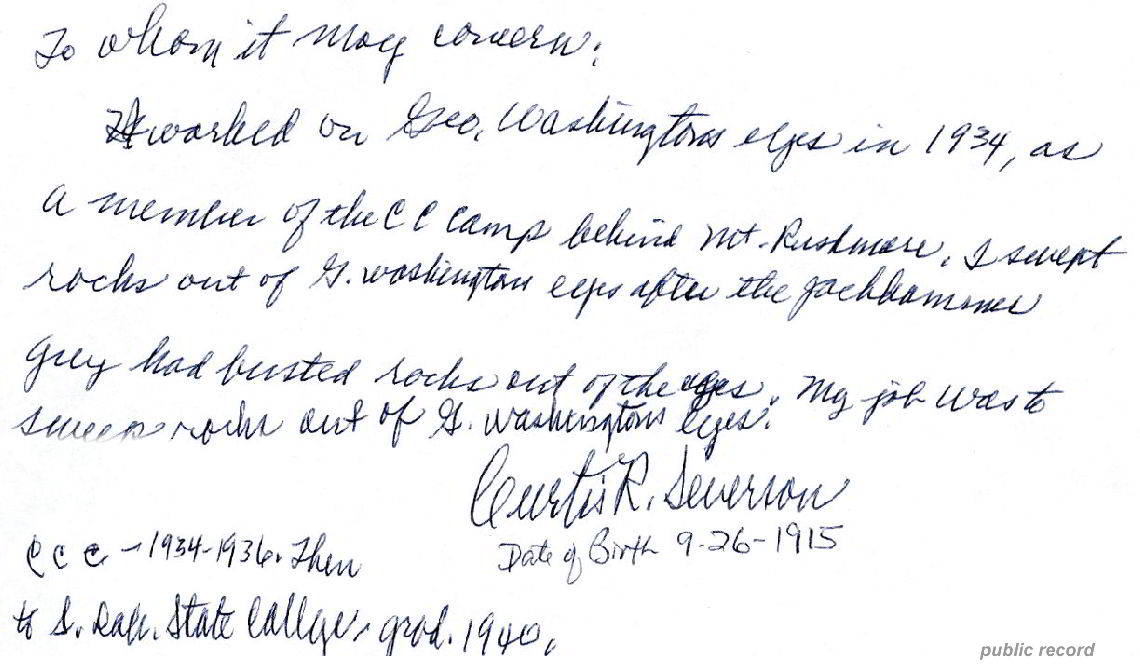 To whom it may concern:
I worked on Geo. Washingtons eyes in 1934, as
a member of the CC Camp behind Mt. Rushmore. I swept
rocks out of G. Washington eyes after the jackhammer
guy had busted rocks out of the eyes. My job was to
sweep rocks out of G. Washingtons eyes.
Curtis R. Severson
Date of Birth 9-26-1915
CCC - 1934-1936. Then
to S. Dak. State College, grad. 1940.
public record